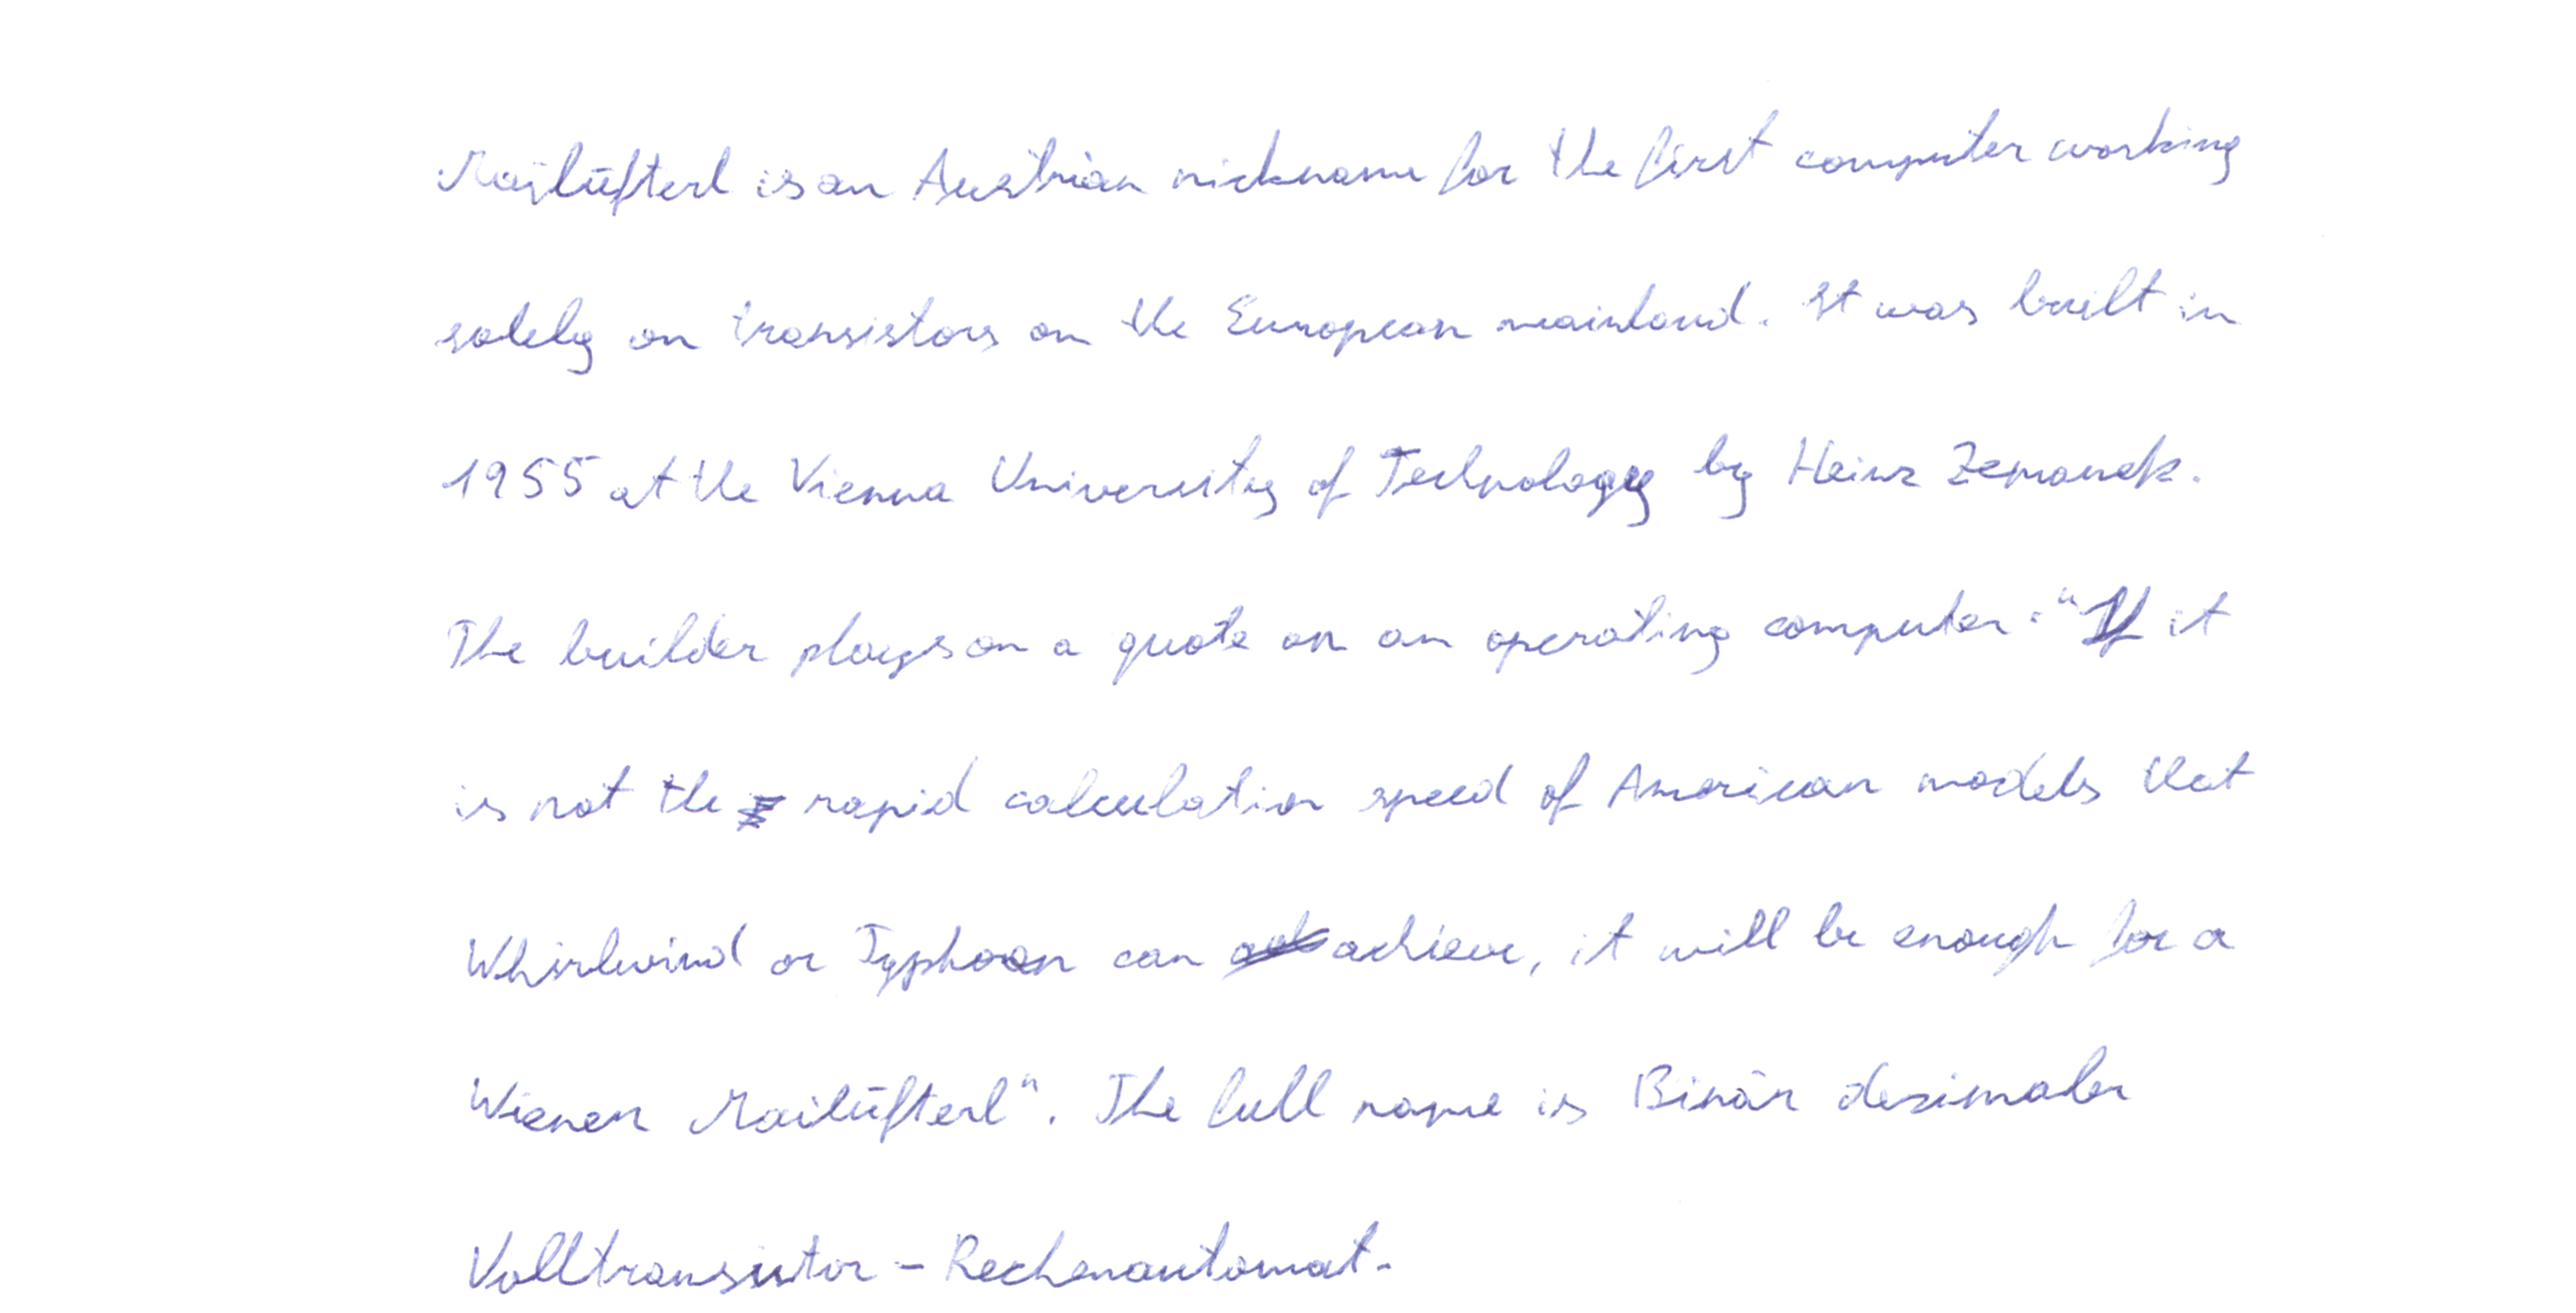 Mailüfterl is an Austrian nickname for the first computer working
solely on transistors on the European mainland. It was built in
1955 at the Vienna University of Technology by Heinz Zemanek.
The builder plays on a quote on an operating computer: "If it
is not the rapid calculation speed of American models that
Whirlwind or Typhoon can achieve, it will be enough for a
Wiener Mailüfterl". The full name is Binär dezimaler
Volltransistor-Rechenautomat.